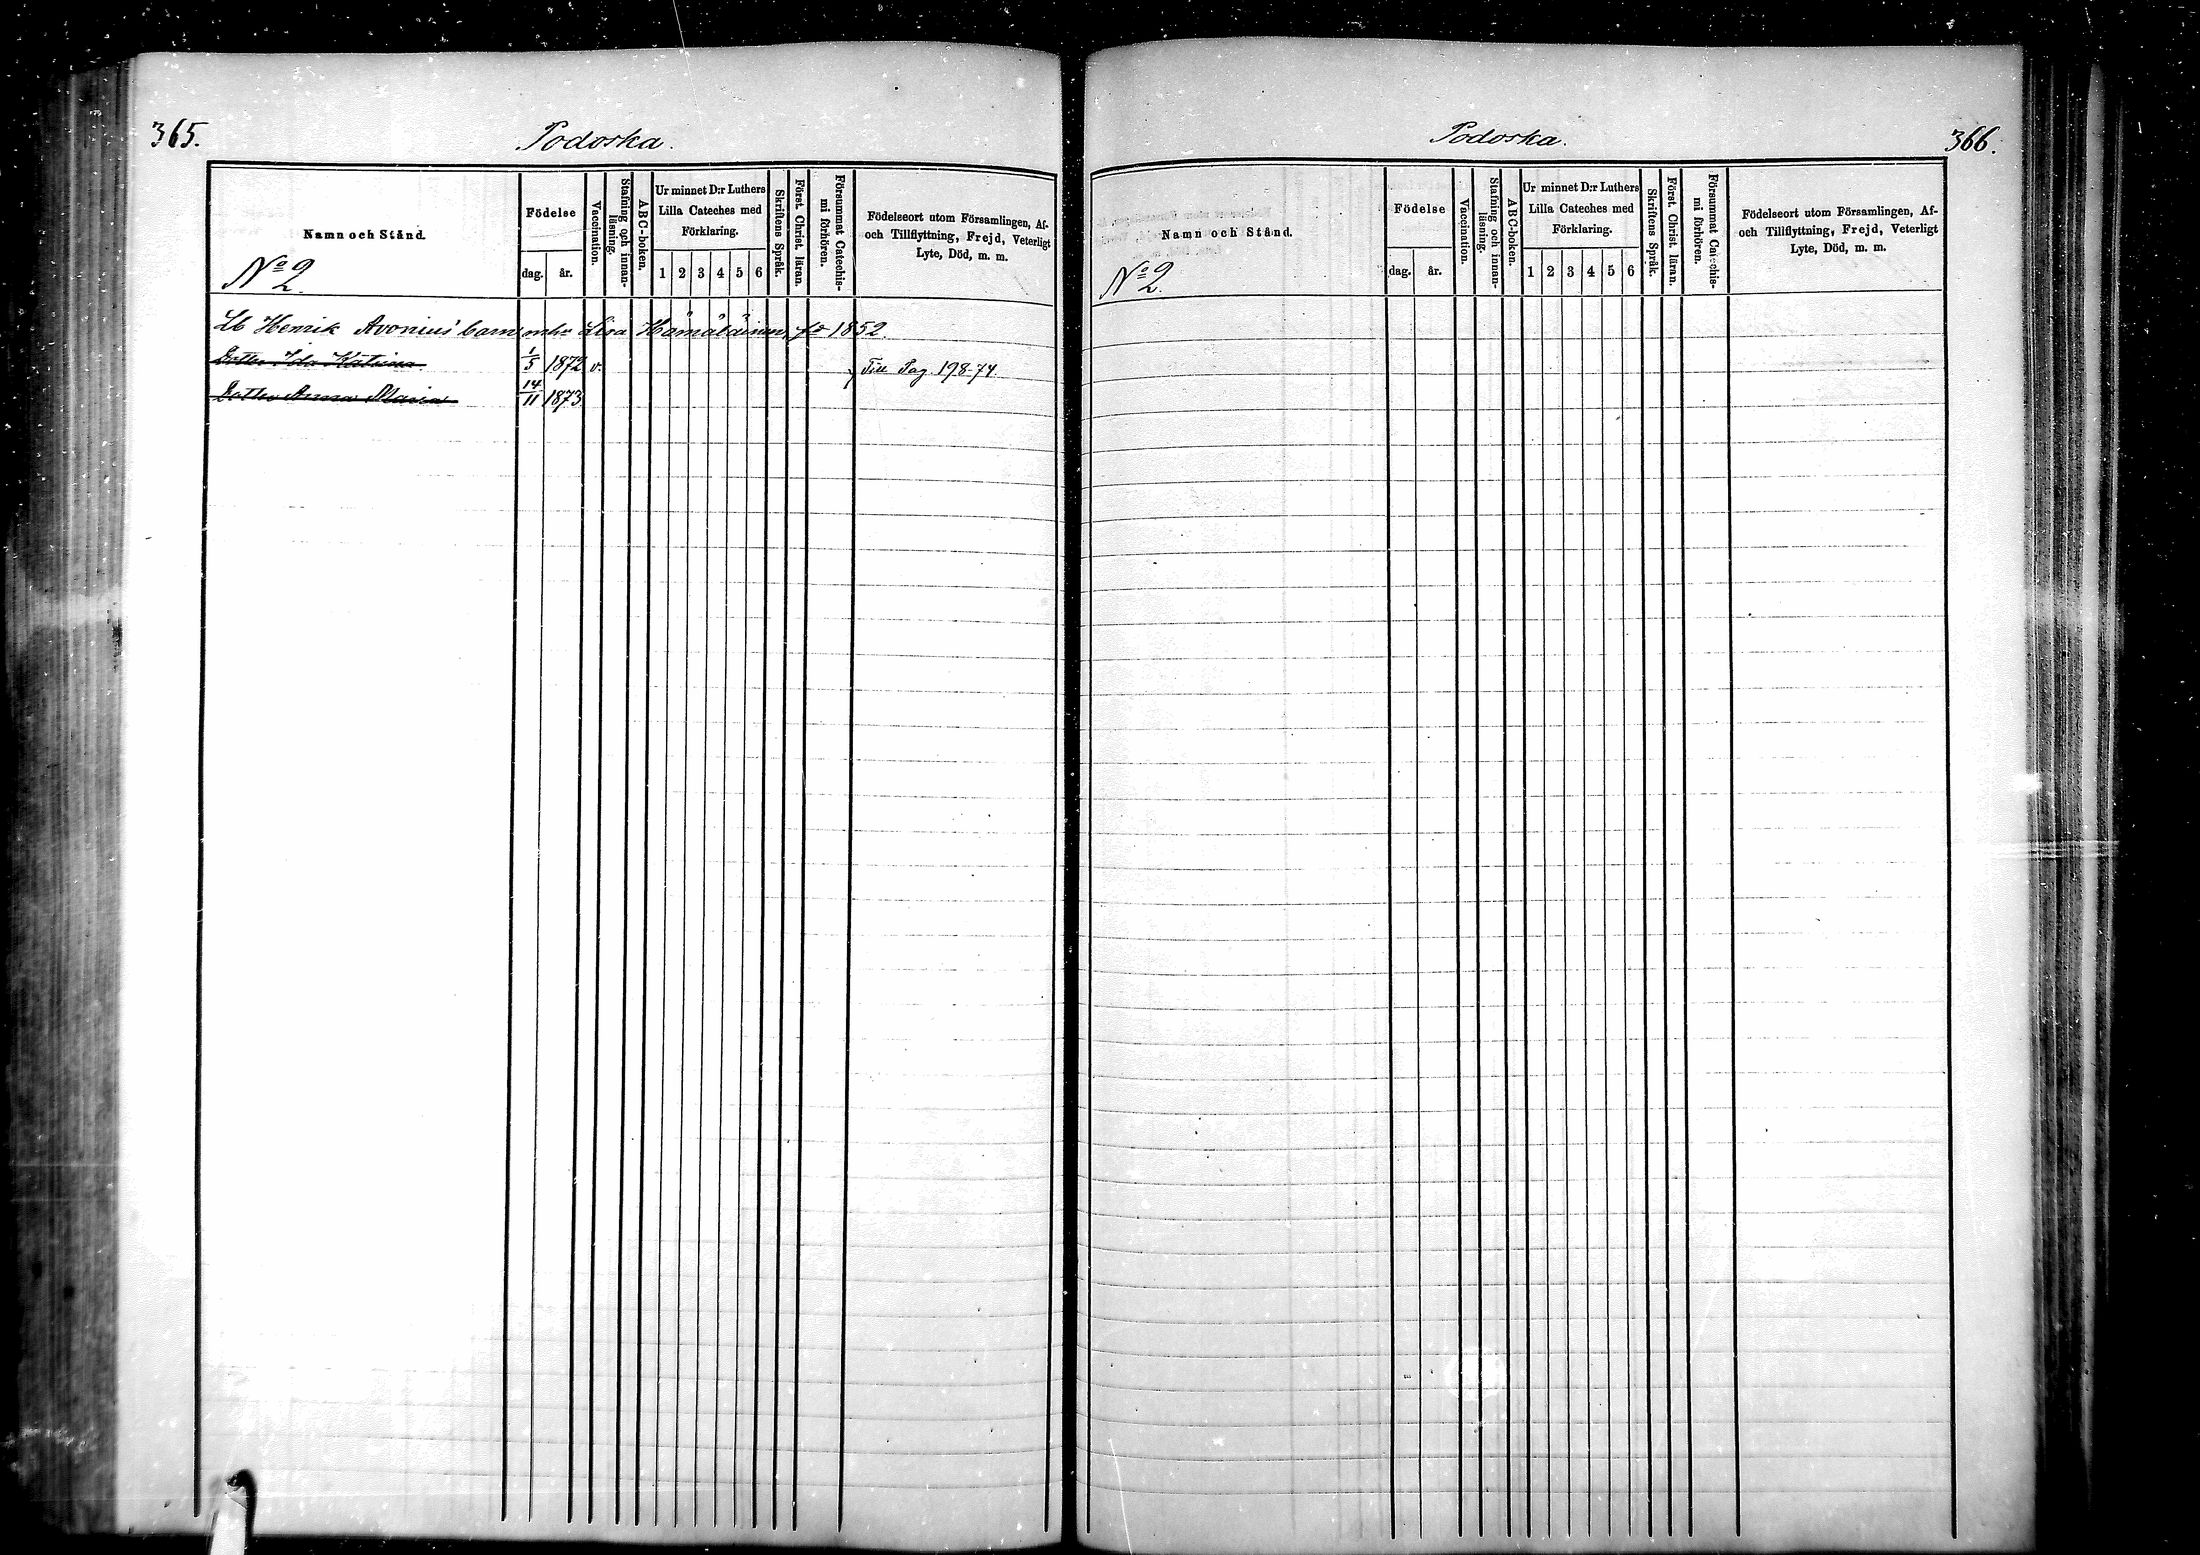 365.
Podoska.
Namn och Stånd.
No 2.
Födelse
dag.
år.
Vaccination.
Stafning och innan-
läsning.
ABC-boken.
Ur minnet D:r Luthers
Lilla Cateches med
Förklaring.
1 2 3 4 5 6
Skriftens Språk.
Först. Christ. läran.
Försummat Catechis-
mi förhören.
Födelseort utom Församlingen, Af-
och Tillflyttning, Frejd, Veterligt
Lyte, Död, m. m.
Lb Henrik Avonius' barn, mhr Lisa Hämäläinen, fd 1852.
Dotter Ida Katrina 1/5 1872 v. Till Pag. 198-74.
Dotter Anna Maria 14/11 1873.
Podoska.
366.
Namn och Stånd.
No 2.
Födelse
dag.
år.
Vaccination.
Stafning och innan-
läsning.
ABC-boken.
Ur minnet D:r Luthers
Lilla Cateches med
Förklaring.
1 2 3 4 5 6
Skriftens Språk.
Först. Christ. läran.
Försummat Catechis-
mi förhören.
Födelseort utom Församlingen, Af-
och Tillflyttning, Frejd, Veterligt
Lyte, Död, m. m.